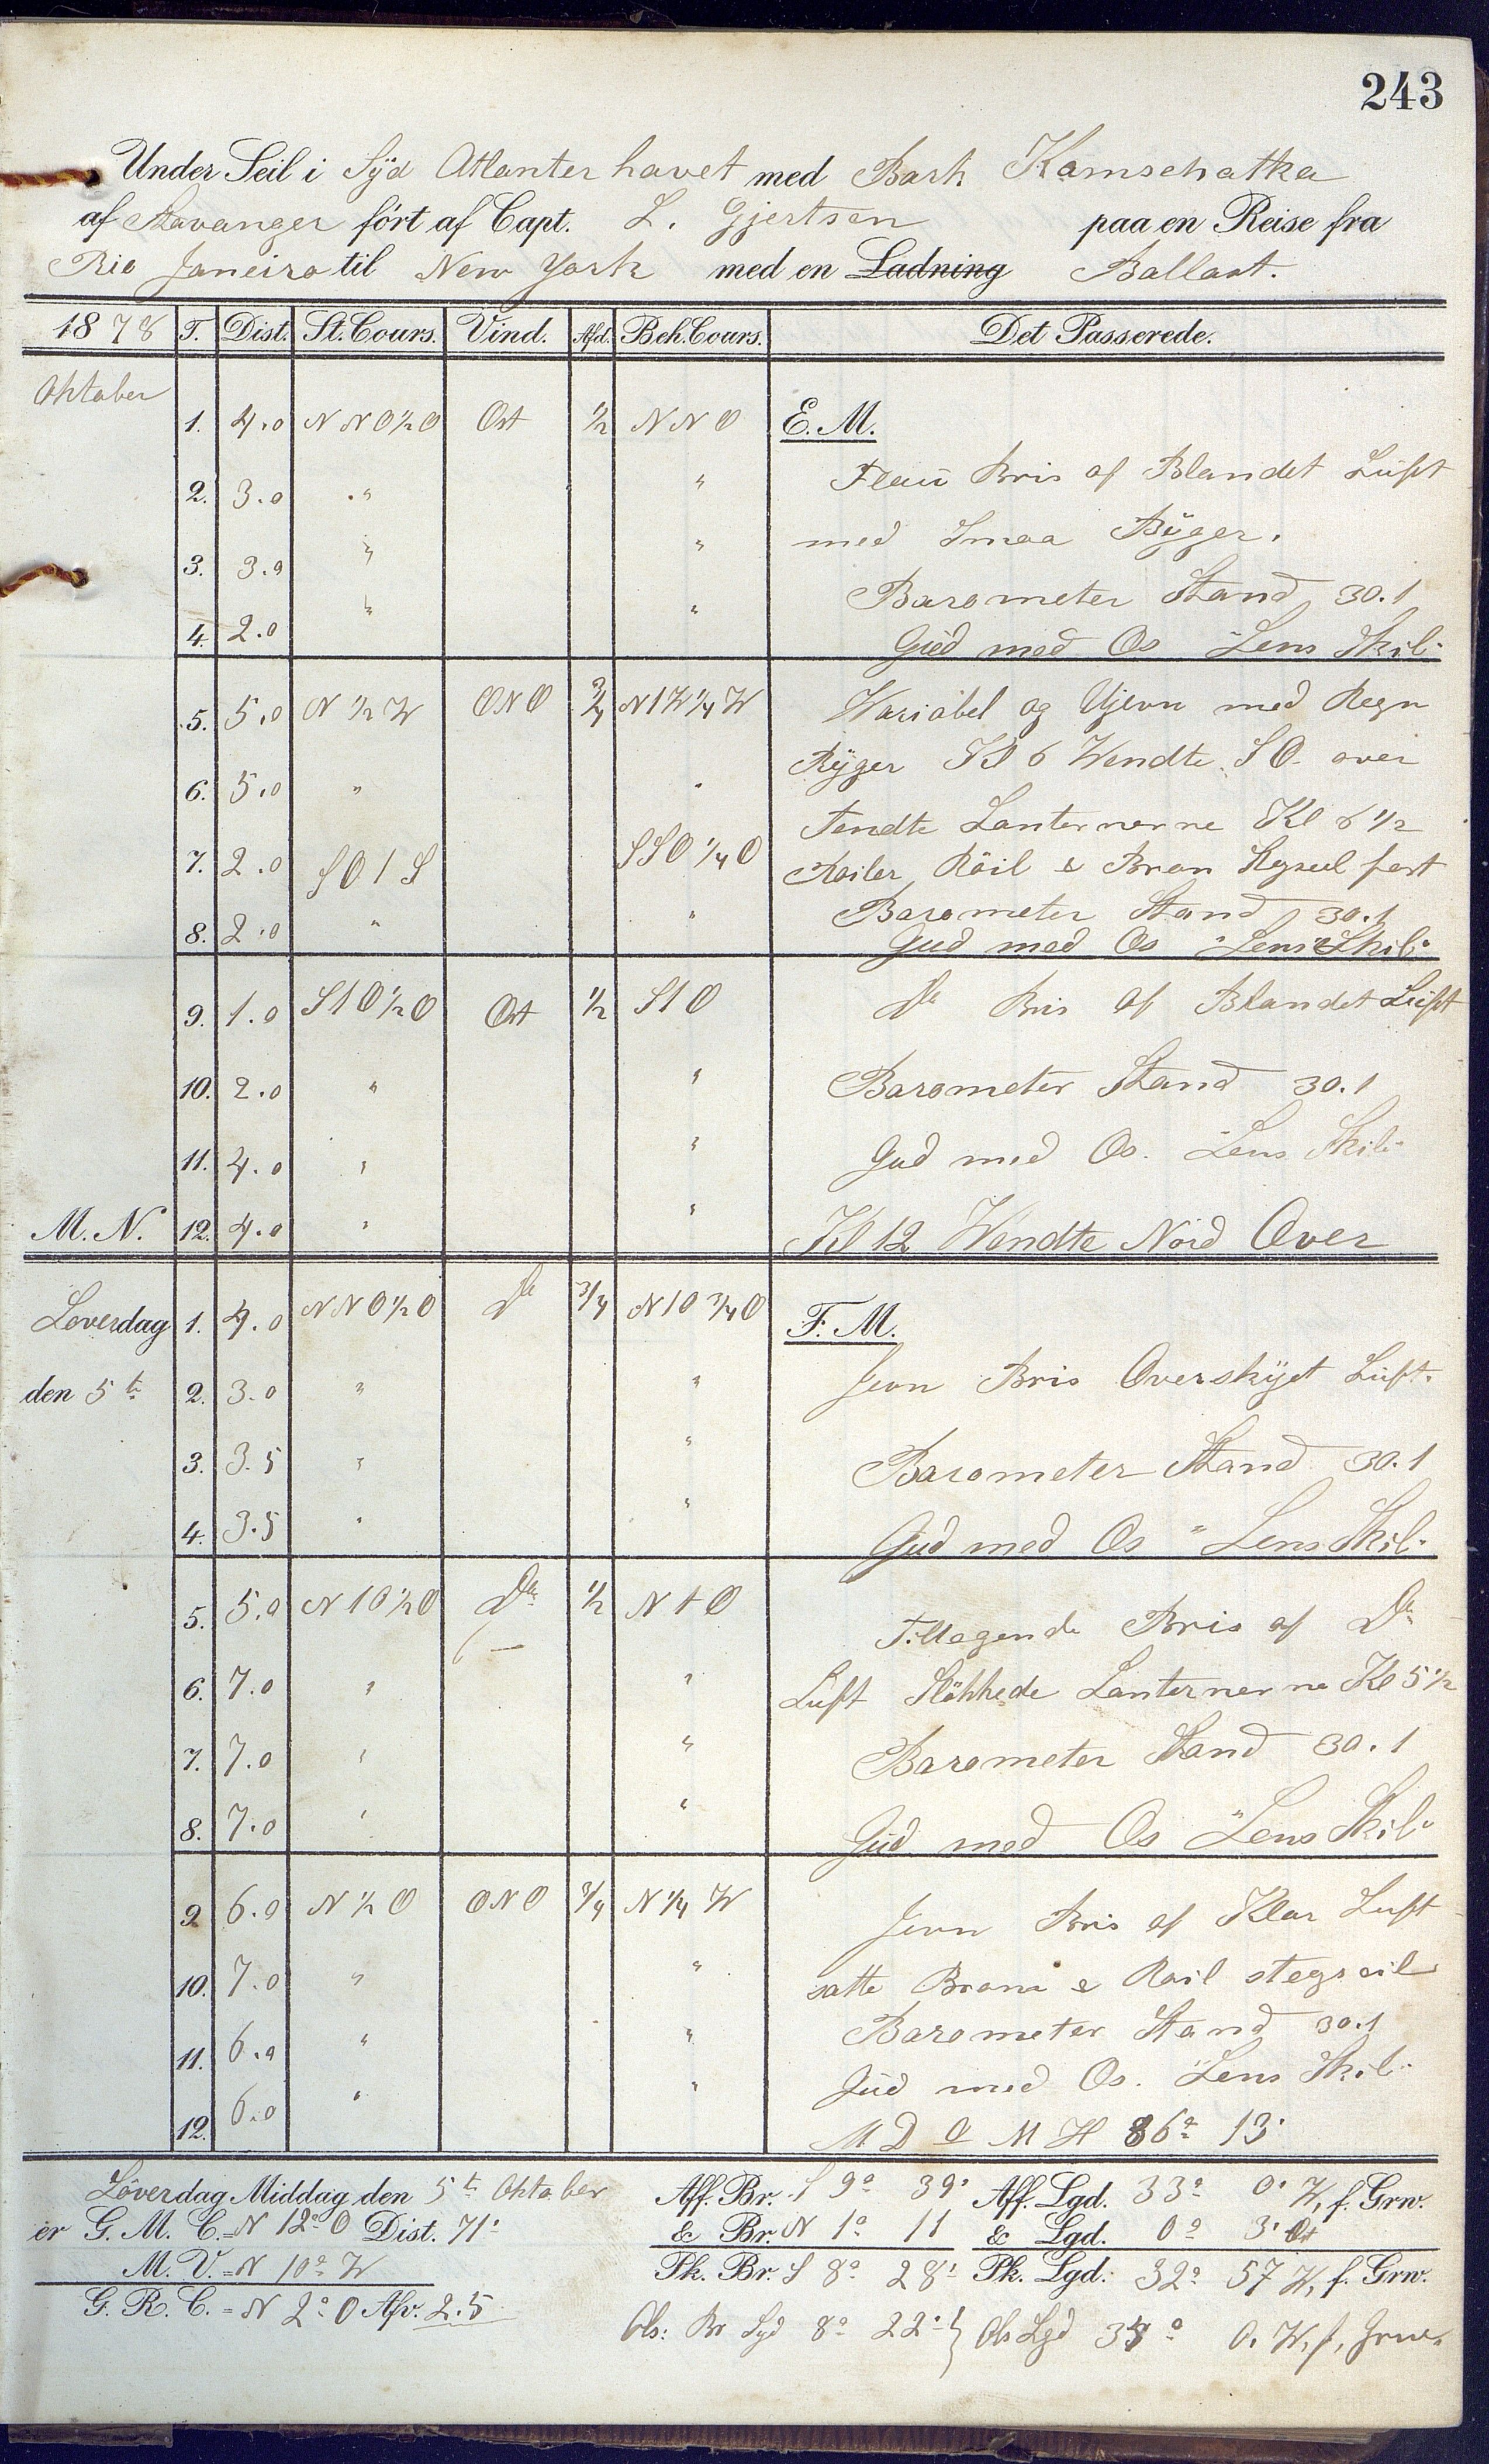 243
Under Seil i Syd Atlanter havet med Bark Kamschatka
af Stavanger fört af Capt. L. Gjertsen paa en Reise fra
Rio Janeiro til New York med en Ladning Ballast.
1878 T. Dist. St. Cours. Vind. Afd. Beh. Cours. Det Passerede.
Oktober
1. 4.0 N N O ½ O Ost ½ N N O E. M.
2. 3.0 " " Flau Bris af Blandet Luft
med Smaa Byger.
3. 3.0 " "
Barometer Stand 30.1
4. 2.0 " " Gud med Os "Lens Skib"
5. 5.0 N ½ W O N O ¾ N 1 W ¼ W Wariabel og Ujevn med Regn
Byger Kl 6 Wendte S O. over
6. 5.0 " "
Tendte Lanternerne Kl 6 ½
7. 2.0 S O 1 S S S O ¼ O Röil & Bram Stagseil fast
Barometer Stand 30.1
8. 2.0 " " Gud med Os "Lens Skib"
9. 1.0 S 1 O ½ O Ost ½ S 1 O Do Bris af Blandet Luft
10. 2.0 " " Barometer Stand 30.1
11. 4.0 " " Gud med Os. "Lens Skib"
M. N. 12. 4.0 " " Kl 12 Wendte Nord Over
Löverdag 1. 4.0 N N O ½ O Do ¾ N 1 O ¾ O F. M.
den 5te 2. 3.0 " " Jevn Bris Overskyet Luft.
3. 3.5 " " Barometer Stand 30.1
4. 3.5 " " Gud med Os "Lens Skib"
5. 5.0 N 1 O ½ O Do ½ N 1 O Tiltagende Bris af Do
6. 7.0 " " Luft Slökkede Lanternerne Kl 5 ½
7. 7.0 " " Barometer Stand 30.1
8. 7.0 " " Gud med Os "Lens Skib"
9. 6.0 N ½ O O N O ¾ N ¼ W Jevn Bris af Klar Luft
10. 7.0 " " satte Bram & Roil stagseil
Barometer Stand 30.1
11. 6.0 " "
Gud med Os. "Lens Skib"
12. 6.0 " " M D O M H 86° 13'
Löverdag Middag den 5te Oktober Aff. Br. S 9° 39' Aff. Lgd. 33° 0' W, f. Grw.
er G. M. C. = N 12° O Dist. 71' & Br. N 1° 11 & Lgd. 0° 3' Ost
M. V. = N 10° W Pk. Br. S 8° 28' Pk. Lgd.: 32° 57 W, f. Grw.
G. R. C. = N 2° O Afv. 2.5
Obs: Br Syd 8° 22' } Obs Lgd 0. W. f. Grw.